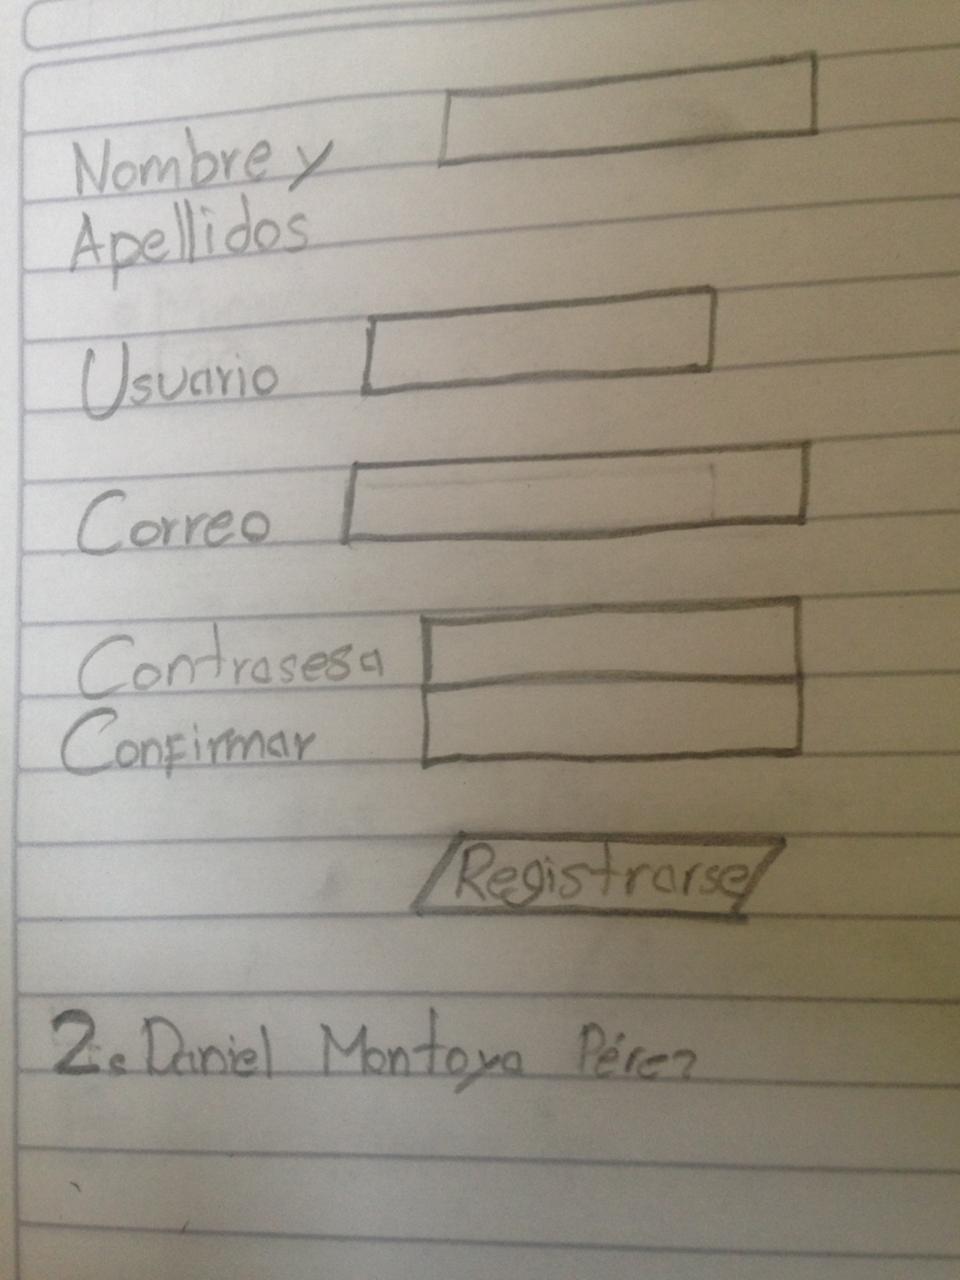 Nombre y
Apellidos
Usuario
Correo
Contrasesa
Confirmar
Registrarse
2. Daniel Montoya Pérez